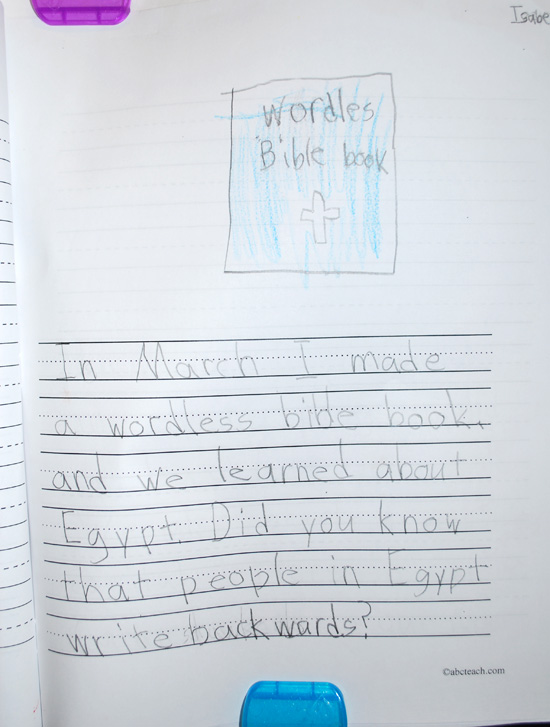 Isabe
Wordles
Bible book
In March I made
a wordless bible book,
and we learned about
Egypt. Did you know
that people in Egypt
write backwards?
©abcteach.com